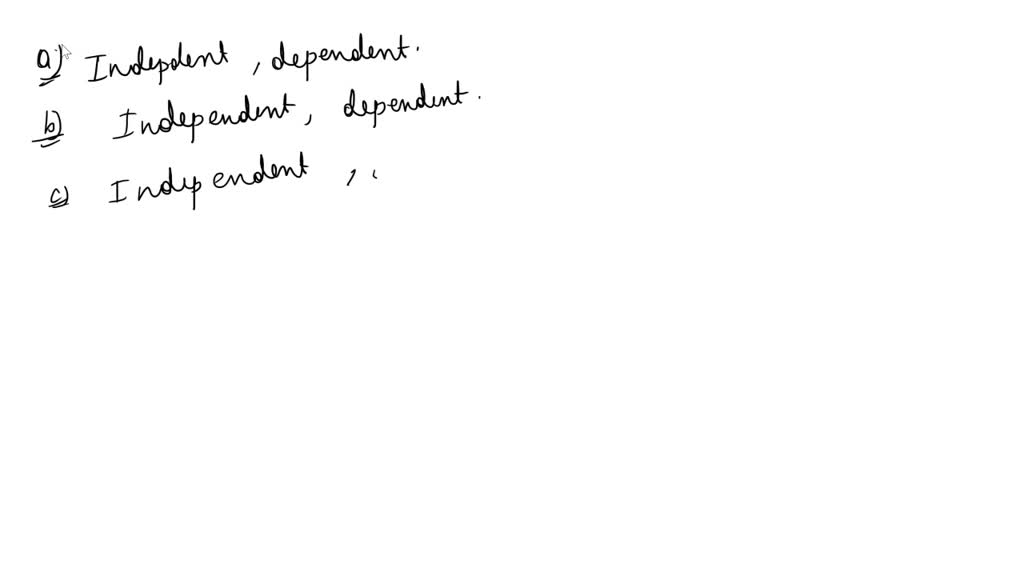 a) Indepdent , dependent.
b) Independent, dependent.
c) Independent ,